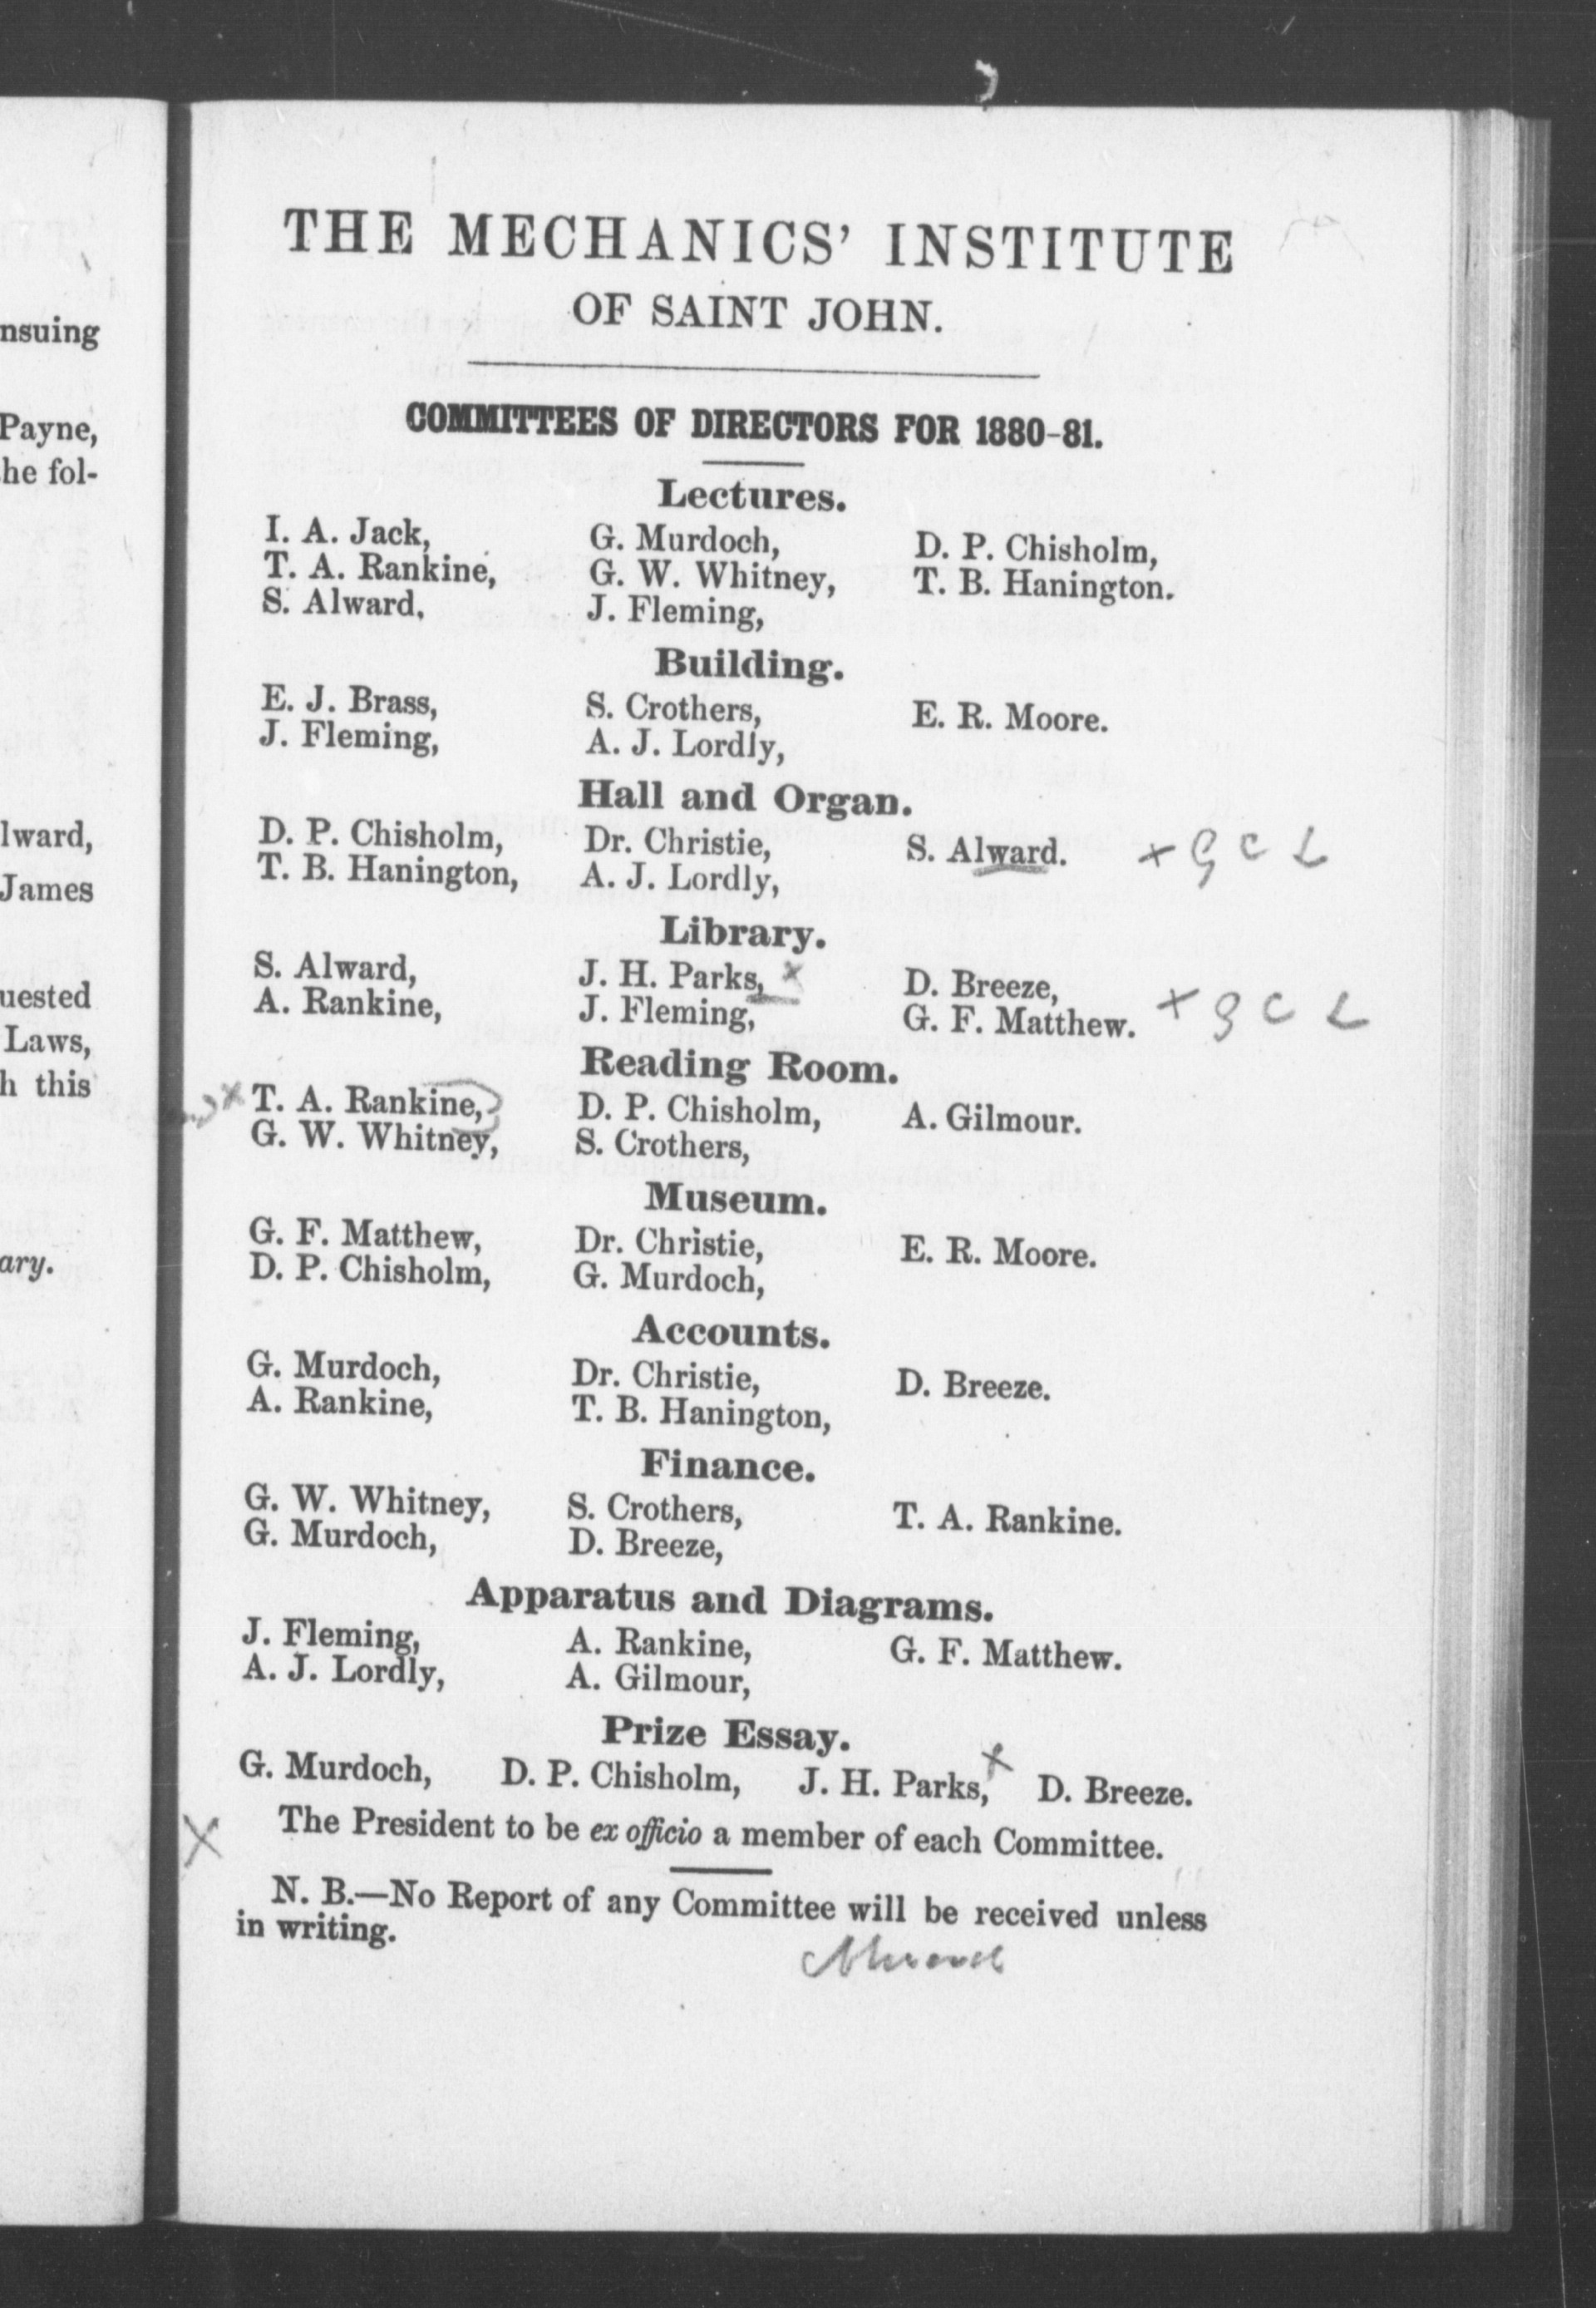 nsuing
Payne,
he fol-
lward,
James
uested
Laws,
h this
ary.
THE MECHANICS' INSTITUTE
OF SAINT JOHN.
COMMITTEES OF DIRECTORS FOR 1880-81.
Lectures.
I. A. Jack, G. Murdoch, D. P. Chisholm,
T. A. Rankine, G. W. Whitney, T. B. Hanington.
S. Alward, J. Fleming,
Building.
E. J. Brass, S. Crothers, E. R. Moore.
J. Fleming, A. J. Lordly,
Hall and Organ.
D. P. Chisholm, Dr. Christie, S. Alward. + G C L
T. B. Hanington, A. J. Lordly,
Library.
S. Alward, J. H. Parks, x D. Breeze,
A. Rankine, J. Fleming, G. F. Matthew. + G C L
Reading Room.
x T. A. Rankine, D. P. Chisholm, A. Gilmour.
G. W. Whitney, S. Crothers,
Museum.
G. F. Matthew, Dr. Christie, E. R. Moore.
D. P. Chisholm, G. Murdoch,
Accounts.
G. Murdoch, Dr. Christie, D. Breeze.
A. Rankine, T. B. Hanington,
Finance.
G. W. Whitney, S. Crothers, T. A. Rankine.
G. Murdoch, D. Breeze,
Apparatus and Diagrams.
J. Fleming, A. Rankine, G. F. Matthew.
A. J. Lordly, A. Gilmour,
Prize Essay.
G. Murdoch, D. P. Chisholm, J. H. Parks, x D. Breeze.
X The President to be ex officio a member of each Committee.
N. B.—No Report of any Committee will be received unless
in writing.